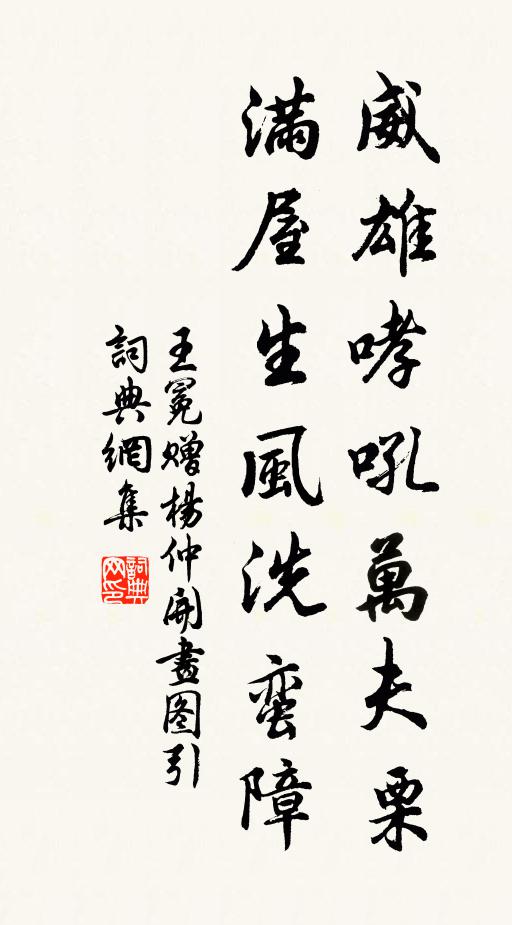 威雄哮吼萬夫栗
滿屋生風洗蛮障
王冕赠楊仲開畫图引
詞典網集
詞典網印